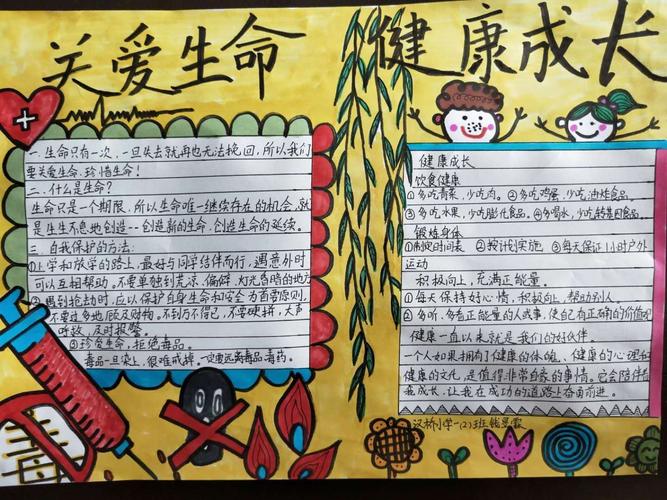 关爱生命 健康成长
一.生命只有一次,一旦失去就再也无法挽回,所以我们
要关爱生命.珍惜生命!
二.什么是生命?
生命只是一个期限,所以生命唯一继续存在的机会,就
是生生不息地创造--创造新的生命.创造生命的延续.
三.自我保护的方法:
①上学和放学的路上,最好与同学结伴而行,遇意外时
可以互相帮助,不要单独到荒凉、偏僻、灯光昏暗的地方
②遇到抢劫时,应以保护自身生命和安全为首要原则,
不要过多地顾及财物,不到万不得已,不要硬拼,大声
呼救,及时报警.
③珍爱生命,拒绝毒品.
毒品一旦染上,很难戒掉.一定要远离毒品.毒药.
毒
健康成长
饮食健康
①多吃青菜,少吃肉。②多吃鸡蛋,少吃油炸食品。
③多吃水果,少吃膨化食品。④多喝水,少吃转基因食品。
锻炼身体
①制定时间表 ②按计划实施 ③每天保证1小时户外
运动
积极向上,充满正能量。
①每天保持好心情,积极向上,帮助别人。
②多听、多看正能量的人或事,使自己有正确的价值观
健康一直以来就是我们的好伙伴。
一个人如果拥有了健康的体魄、健康的心理和
健康的文化,是值得非常自豪的事情。它会陪伴着
我成长,让我在成功的道路上奋勇前进。
汉桥小学一(2)班